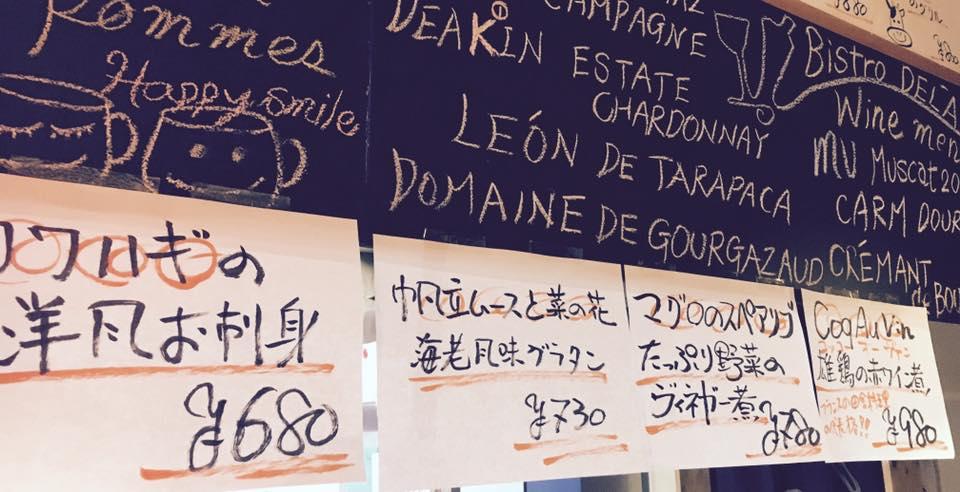 Pommes
Happy Smile
DEAKIN
CAMPAGNE
ESTATE
CHARDONNAY
LEÓN DE TARAPACA
DOMAINE DE GOURGAZAUD
Bistro DELA
Wine men
MV Muscat 20
CARM DOUR
CRÉMANT
de BOU
ワハギの
洋風お刺身
¥680
帆立ムースと菜の花
海老風味グラタン
¥730
マグロのスペアリブ
たっぷり野菜の
ヴィネガー煮
¥780
Coq Au Vin
雄鶏の赤ワイン煮
¥980